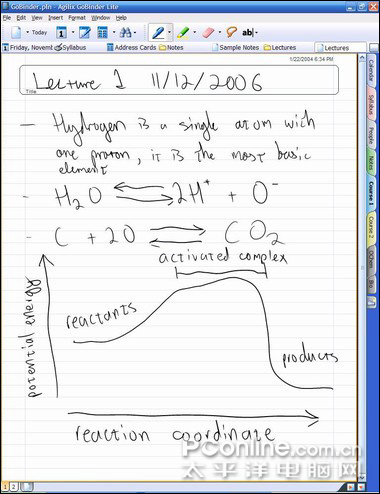 GoBinder.pln - Agilix GoBinder Lite
File Edit View Insert Format Window Help
Today
Friday, Novemb Syllabus Address Cards Notes Sample Notes Lectures Lectures
1/22/2004 8:34 PM
Lecture 1 11/12/2006
Title
- Hydrogen is a single atom with
one proton, it is the most basic
element
- H2O ⇌ 2H+ + O-
- C + 2O ⇌ CO2
activated complex
reactants
products
potential energy
reaction coordinate
Calendar
Syllabus
People
Notes
Course 1
Course 2
OChem
Bio
PConline.com.cn
太平洋电脑网
1 2